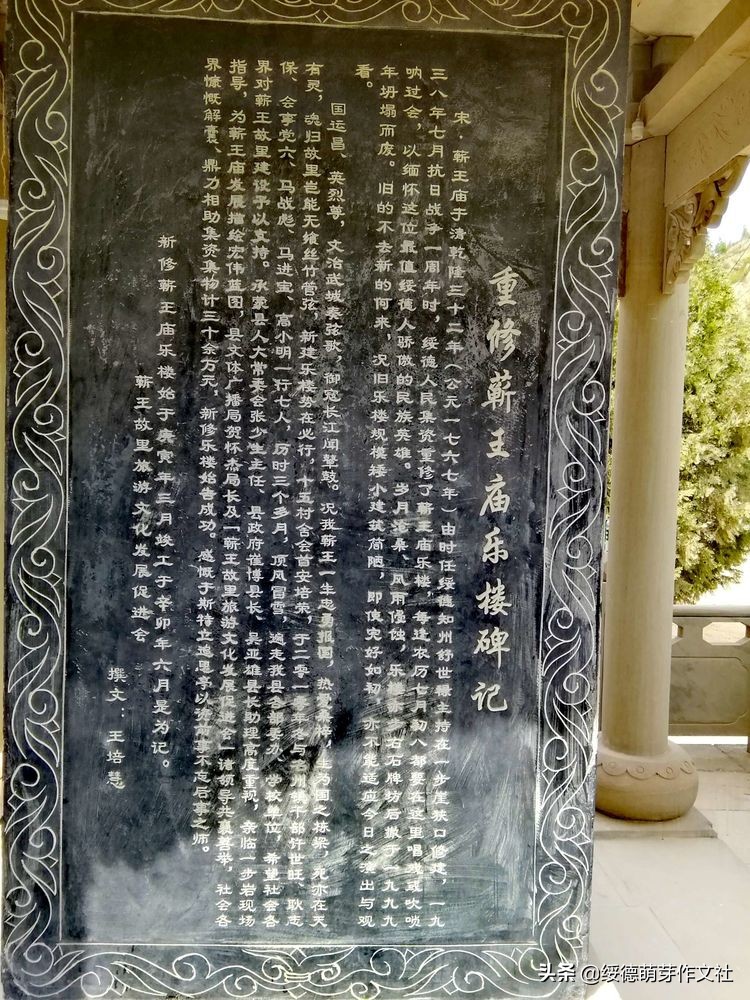 重修蕲王庙乐楼碑记
宋·蕲王庙于清乾隆三十二年（公元一七六七年）由时任绥德知州舒世禄主持在一步崖狭口修建，一九
三八年七月抗日战争一周年时，绥德人民集资重修了蕲王庙乐楼，每逢农历七月初八都要在这里唱戏或吹唢
呐过会，以缅怀这位最值绥德人骄傲的民族英雄。岁月沧桑，风雨侵蚀，乐楼
右石牌坊后撤于一九九九
年坍塌而废。旧的不去新的何来，况旧乐楼规模矮小建筑简陋，即使完好如初，亦不能适应今日之演出与观
看。
国运昌、英烈尊，文治武城奏弦歌，御寇长江闻鼙鼓。况我蕲王一生忠勇报国，热爱桑梓，生为国之栋梁，死亦在天
有灵，魂归故里岂能无缭丝竹管弦，新建乐楼势在必行，十五村合会首安培荣，于二零一零年冬与
川镇干部许世旺、耿志
保、会事党六、马战彪、马进宝、高小明一行七人，历时三个多月，顶风冒雪，遍走我县各部委办、学校单位，希望社会各
界对蕲王故里建设予以支持。承蒙县人大常委会张少生主任、县政府崔博县长、吴亚雄县长助理高度重视，亲临一步岩现场
指导，为蕲王庙发展描绘宏伟蓝图，县文体广播局贺怀杰局长及一蕲王故里旅游文化发展促进会一诸领导共襄善举，社会各
界慷慨解囊、鼎力相助集资集物计三十余万元，新修乐楼始告成功。感慨于斯特立
以
前事不忘后事之师。
新修蕲王庙乐楼始于庚寅年三月竣工于辛卯年六月是为记。
蕲王故里旅游文化发展促进会
撰文：王培慧
头条 @绥德萌芽作文社